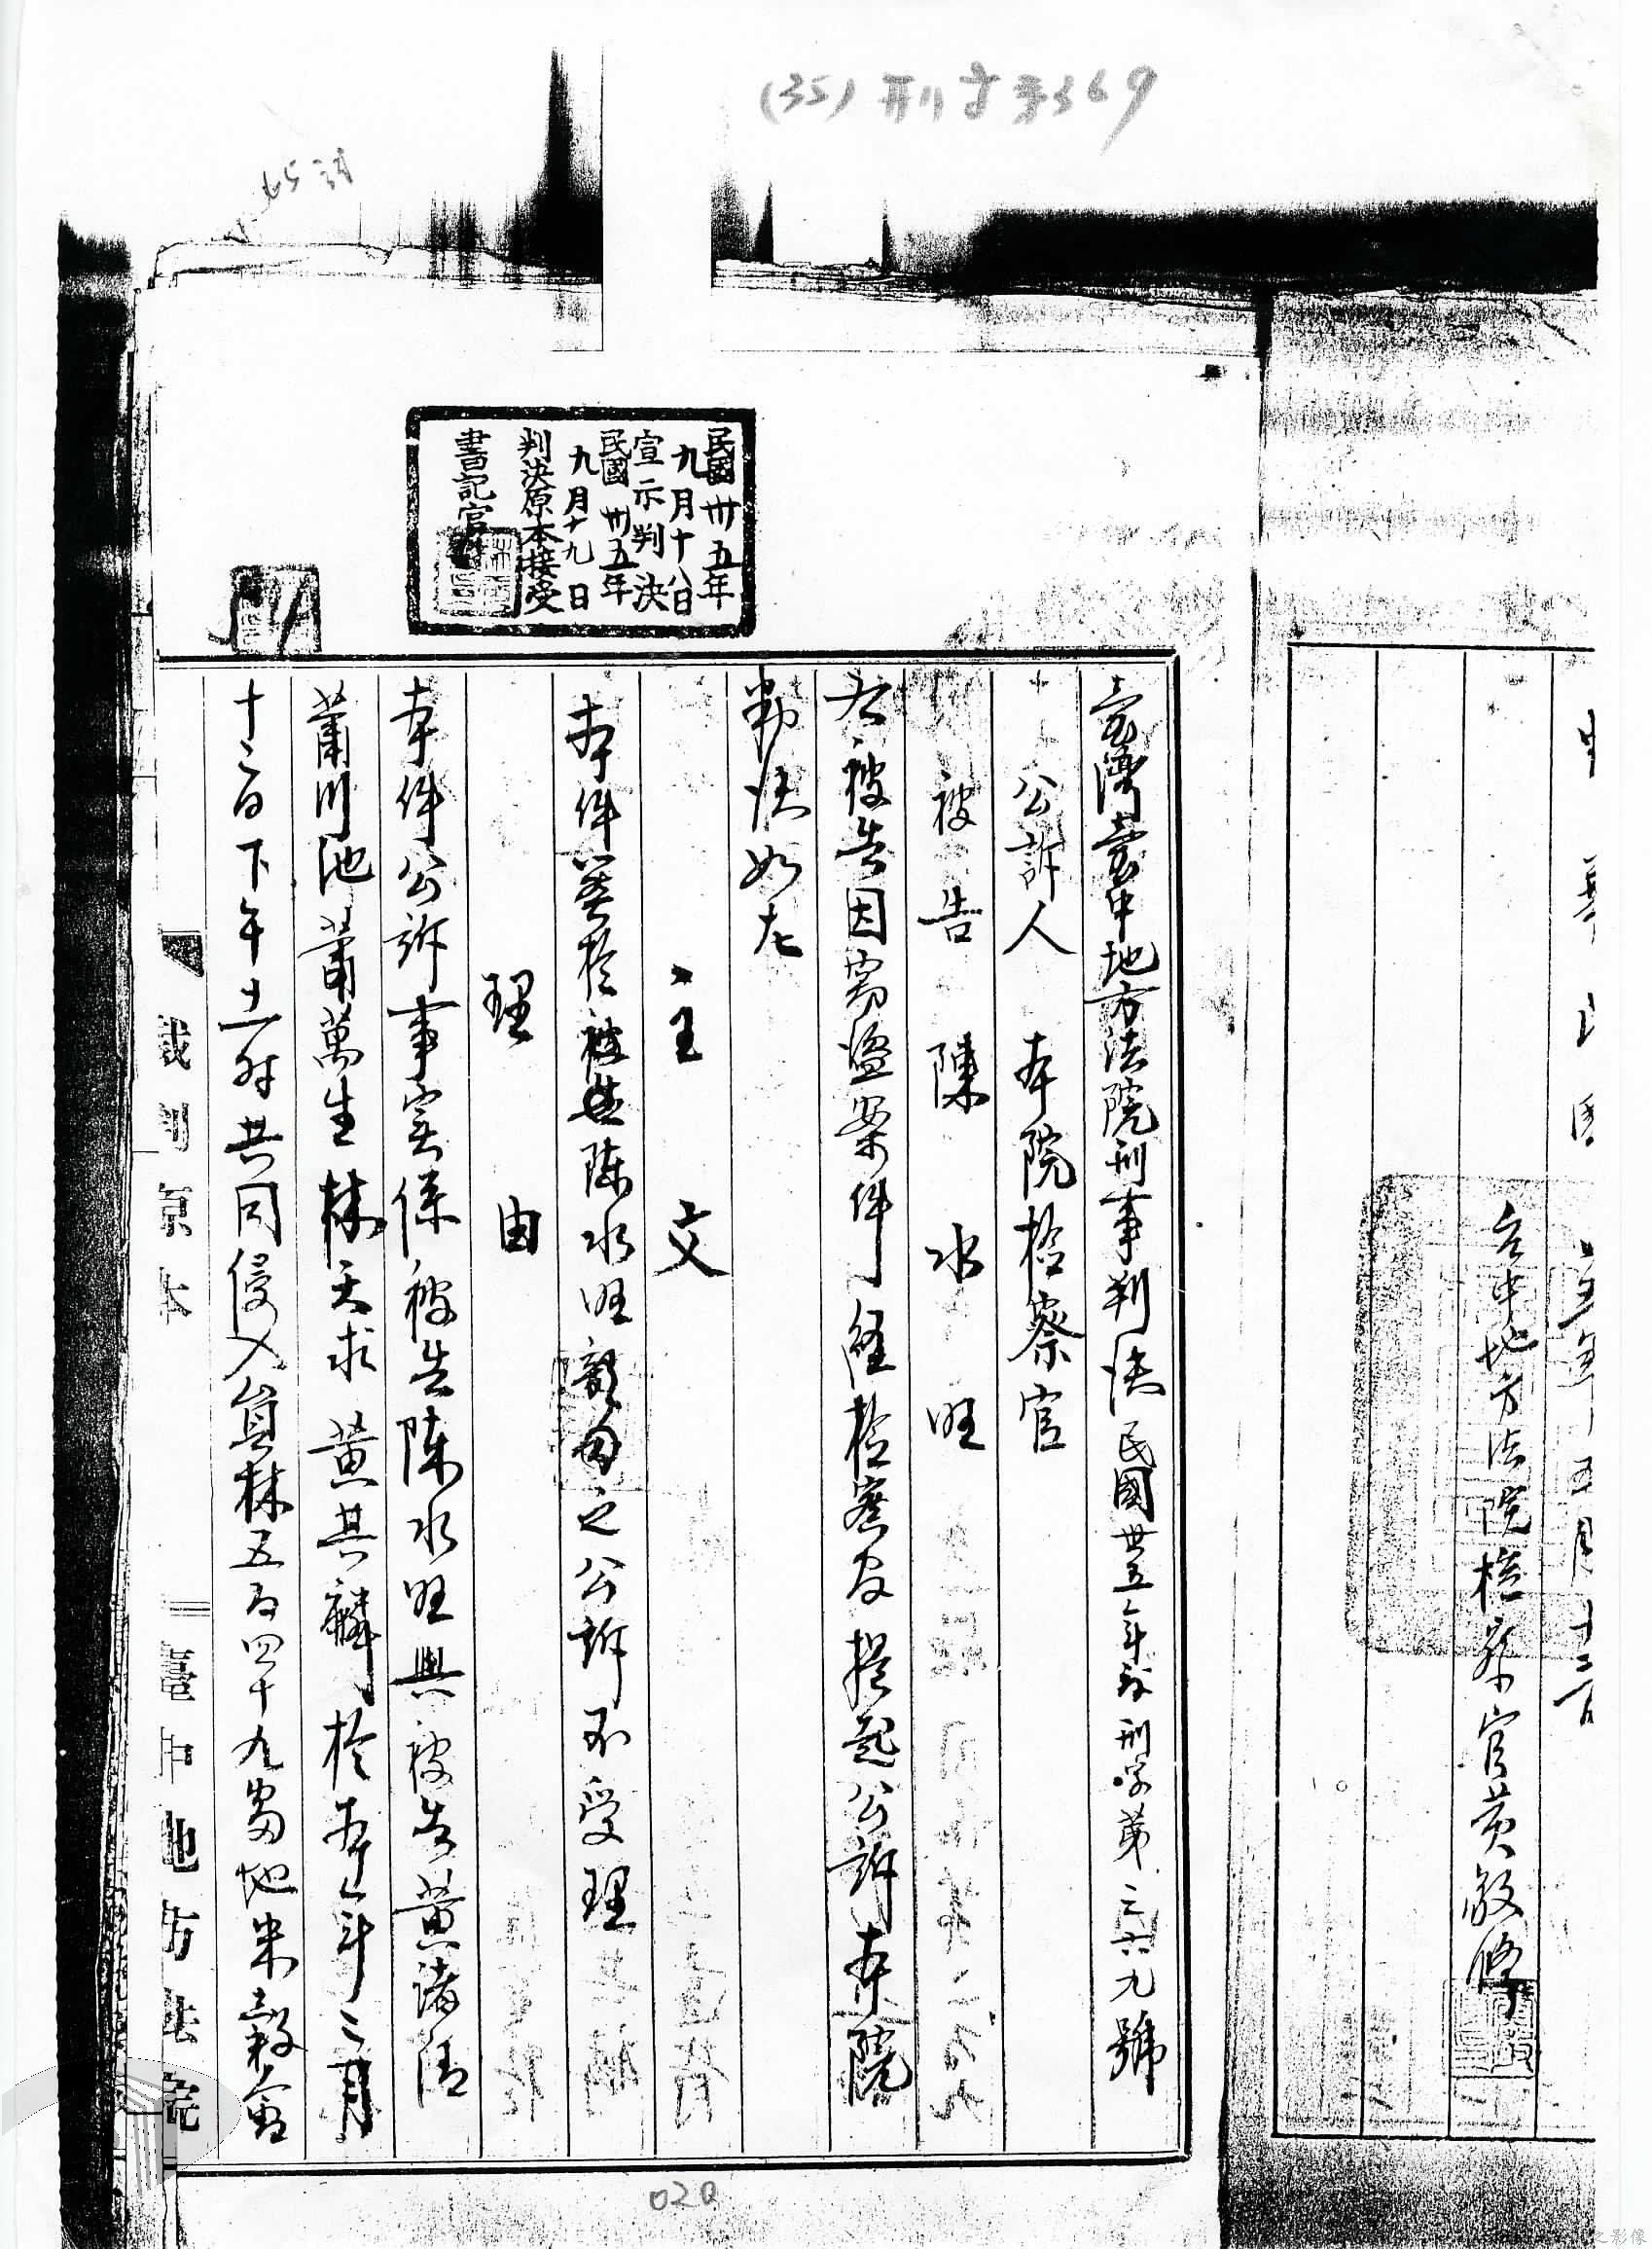 (35)刑字第369
中華民國 五年五月十二日
台中地方法院檢察官黃敏修
民國卅五年
九月十八日
宣示判決
民國卅五年
九月十九日
判決原本接受
書記官
臺灣臺中地方法院刑事判決民國卅五年刑字第三六九號
公訴人 本院檢察官
被告 陳水旺
右被告因竊盜案件經檢察官提起公訴本院
判決如左
主文
本件關於被告陳水旺部份之公訴不受理
理由
本件公訴事實係被告陳水旺與被告黃諸清
蕭川池蕭萬生林天求黃其麟於本年三月
十二日下午十一時共同侵入員林五百四十九番地米穀倉
裁判原本
臺中地方法院
020
之影像